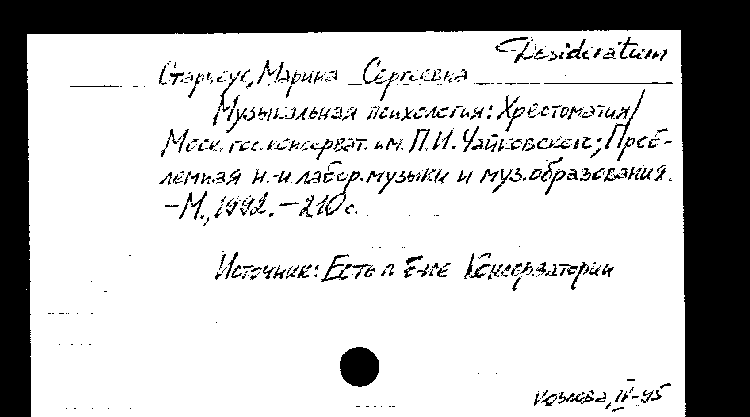 Desideratum
Старчеус, Марина Сергеевна
Музыкальная психология: Хрестоматия/
Моск. гос. консерват. им. П.И. Чайковского; Проб-
лемная н.-и лабор. музыки и муз. образования.
-М., 1992. - 210 с.
Источник: Есть в б-ке Консерватории
Козлова, IV-95